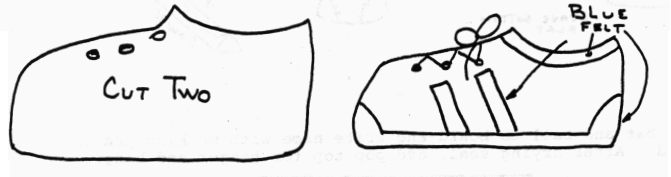 CUT TWO
BLUE
FELT